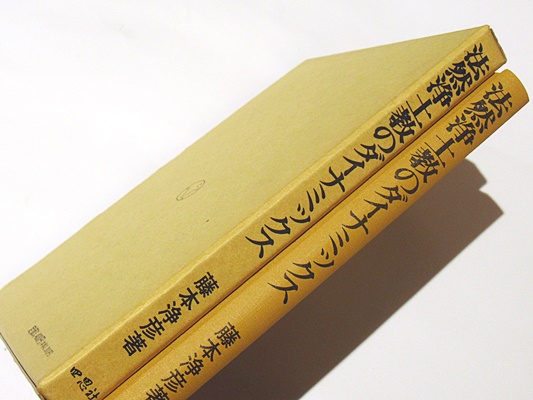 法然浄土教のダイナミックス
藤本浄彦著
思社
法然浄土教のダイナミックス
藤本浄彦著